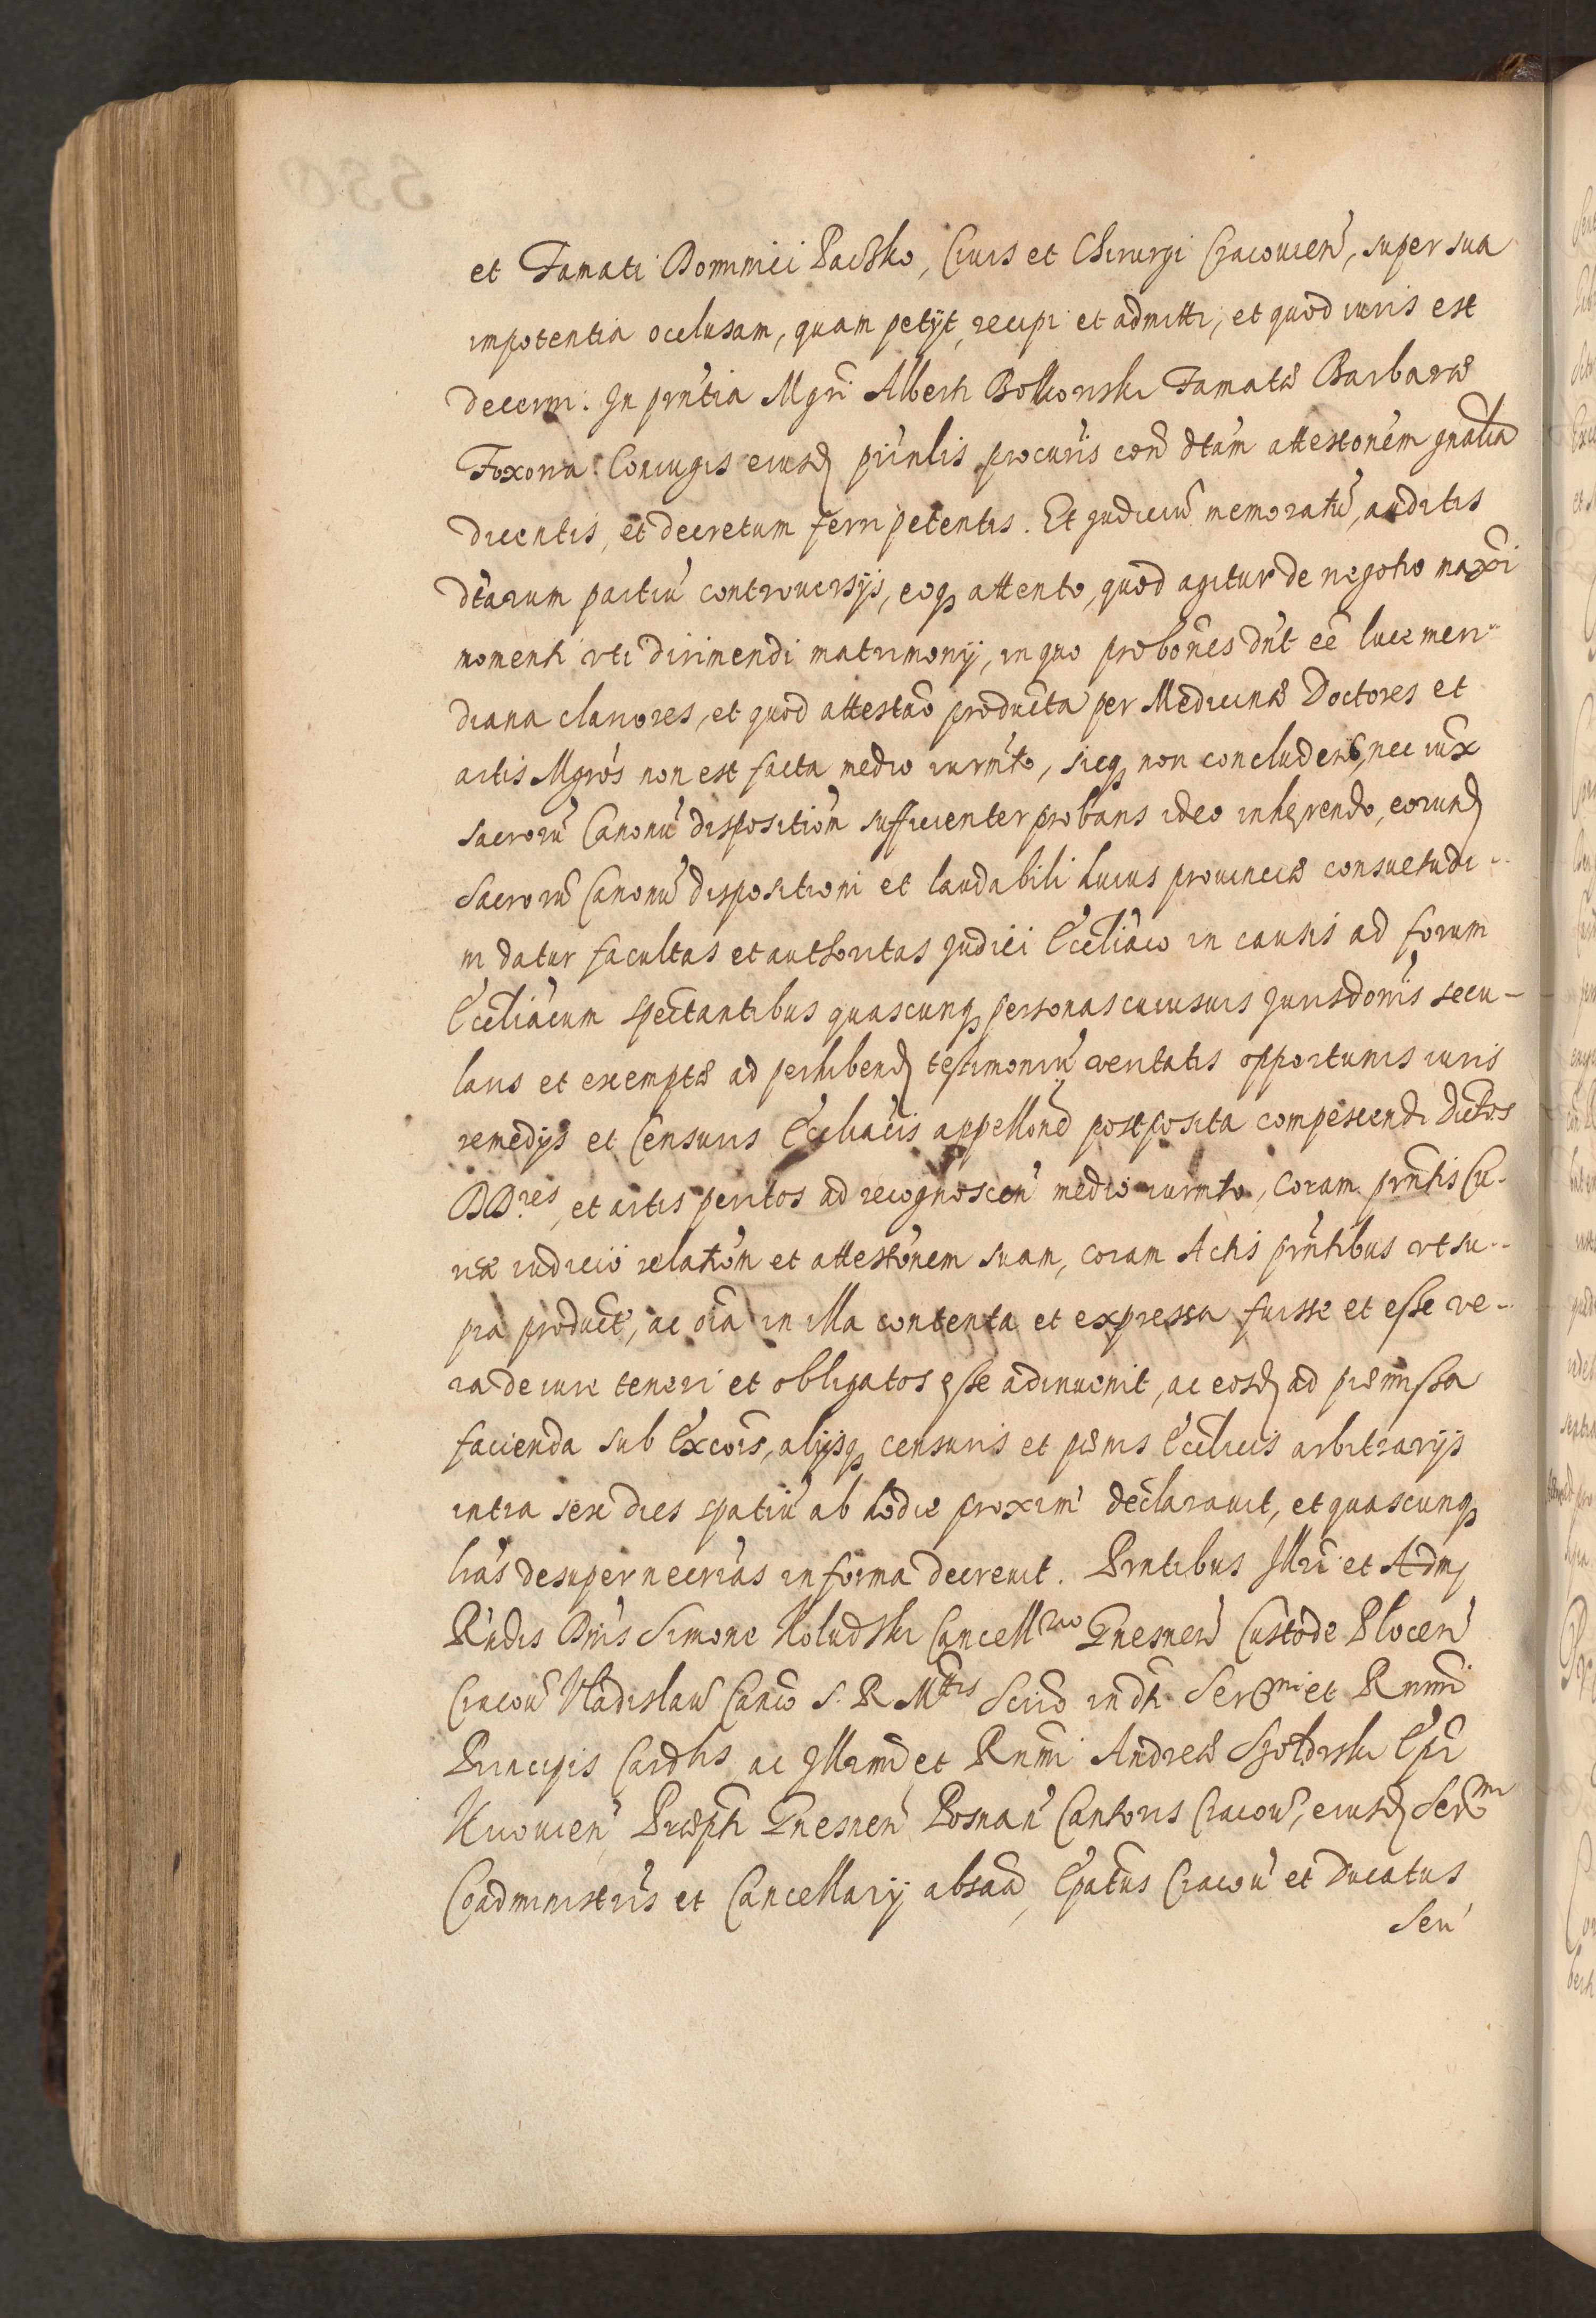 et Famati Dominici Paczko, Ciuis et Chirurgi Cracouien̄, super sua
impotentia oclusam, quam petÿt, recipi et admitti, et quod iuris est
decerni. In pn̄tia Mgrī Alberti Bolkonski Famatæ Barbaræ
Foxowa Coniugis eiusd prīnlis procur̄is con̄ dtām attestonēm gnalia
dicentis, et decretum ferri petentis. Et Judiciū memoratū, auditis
dtārum partiū controuersÿs, eoq attento, quod agitur de negotio maxi
momenti vti dirimendi matrimonÿ, in quo probōnes dn̄t eē luce meri-
diana clariores, et quod attestaō producta per Medicinæ Doctores et
artis Mgrōs non est facta medio iurm̄to, sicq non concludens, nec iux̄
sacrorū Canonū dispositiōn sufficienter probans ideo inherendo, eorund
Sacrorū Canonū dispositioni et laudabili huius prouinciæ consuetudi-
ni datur facultas et authoritas Judici Eccliāco in causis ad forum
Eccliācum spectantibus quascunq personas cuiusuis Jurisdonīs secu-
laris et exemptæ ad perhibend testimoniū veritatis opportunis iuris
remedÿs et Censuris Eccliācis appellōne postposita compescendi dictos
DD.res, et artis peritos ad recognoscen̄ medio iurm̄to, coram prn̄tis Cu-
riæ iudicio relatiōn et attestōnem suam, coram Actis prn̄tibus vt su-
pra product̄, ac oīa in illa contenta et expressa fuisse et esse ve-
ra de iure teneri et obligatos esse adinuenit, ac eosd ad præmissa
facienda sub Excoīs, alÿsq censuris et pænis Eccliicis arbitrarÿs
intra sex dies spatiū ab hodie proximē declarauit, et quascunq
lrās desuper necriās in forma decreuit. Prntibus Illrī et Adm
Rn̄dis Dnīs Simone Koludzki Cancellrio Gnesnen̄ Custode Plocen̄
Cracou̅ Vladislau̅ Canco S. R. Mttis Scrio in dh̄. Sermi et Rnmi
Principis Cardlis ac Illrimi et Rnmi Andreæ Szołdrski Epī
Kiiouien̄ Præpti Gnesnen̄ Posnan̄ Cantoris Cracou̅, eiusd Sermi
Coadministrīs et Cancellarÿ absaā, Epatūs Cracou̅ et Ducatus
Seu̅